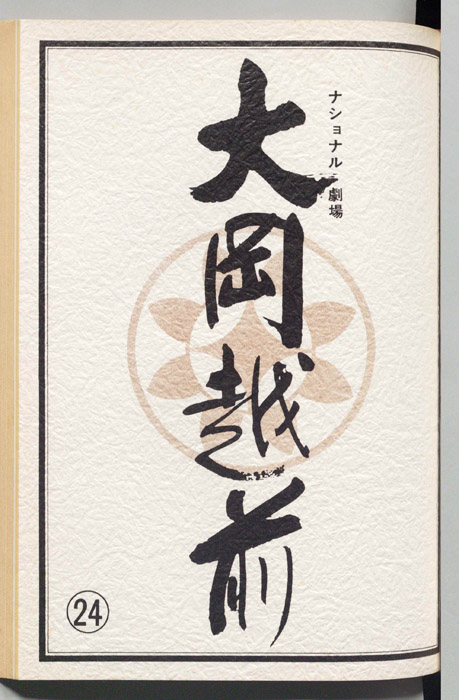 ナショナル劇場
大岡越前
24